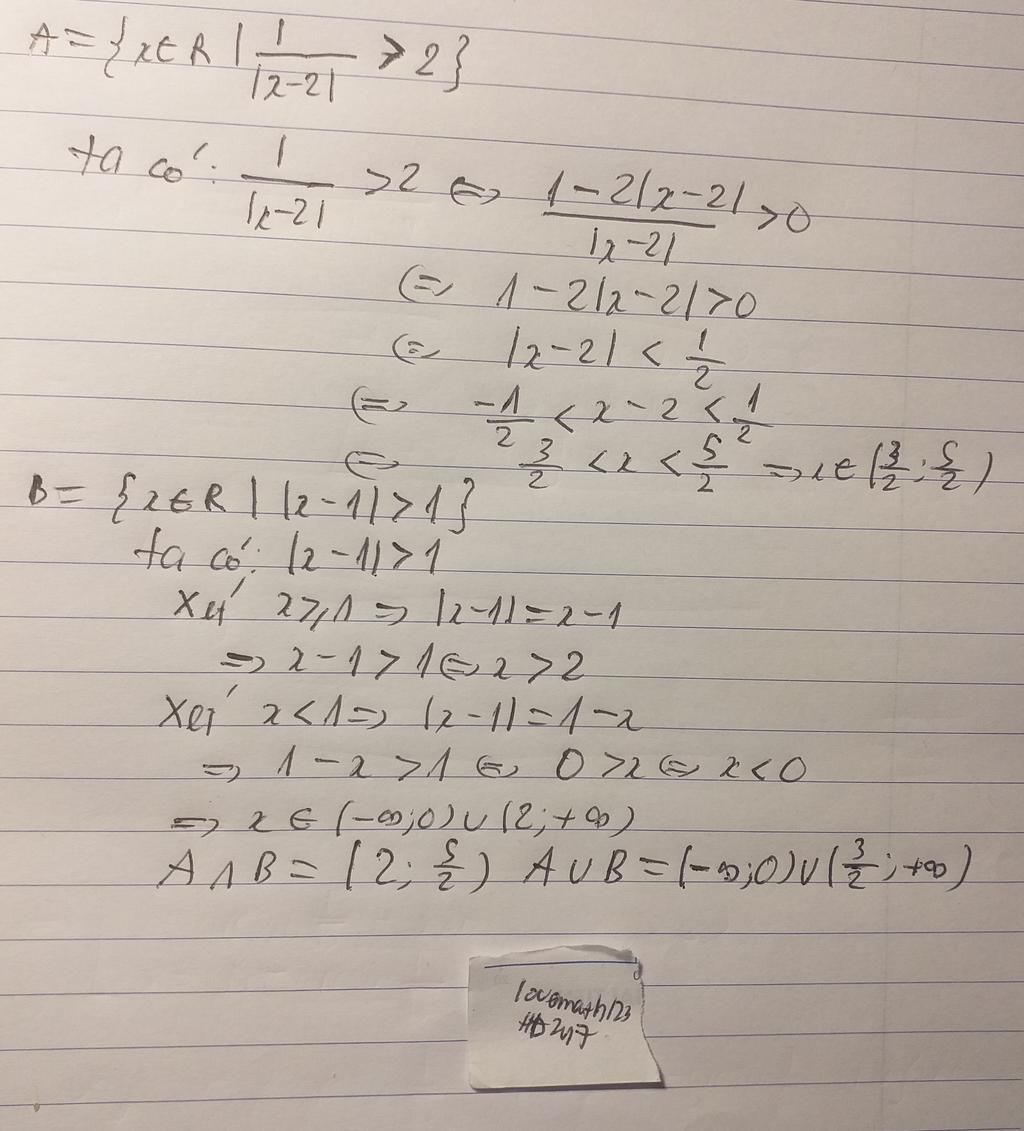 A = {x∈R | 1/|x-2| > 2}
ta có: 1/|x-2| > 2 ⇔ (1-2|x-2|)/|x-2| > 0
⇔ 1-2|x-2| > 0
⇔ |x-2| < 1/2
⇔ -1/2 < x-2 < 1/2
⇔ 3/2 < x < 5/2 ⇒ x∈(3/2; 5/2)
B = {x∈R | |x-1| > 1}
ta có: |x-1| > 1
Xét x ≥ 1 ⇒ |x-1| = x-1
⇒ x-1 > 1 ⇔ x > 2
Xét x < 1 ⇒ |x-1| = 1-x
⇒ 1-x > 1 ⇔ 0 > x ⇔ x < 0
⇒ x ∈ (-∞;0) ∪ (2;+∞)
A∩B = (2; 5/2) A∪B = (-∞;0)∪(3/2; +∞)
lovemath123